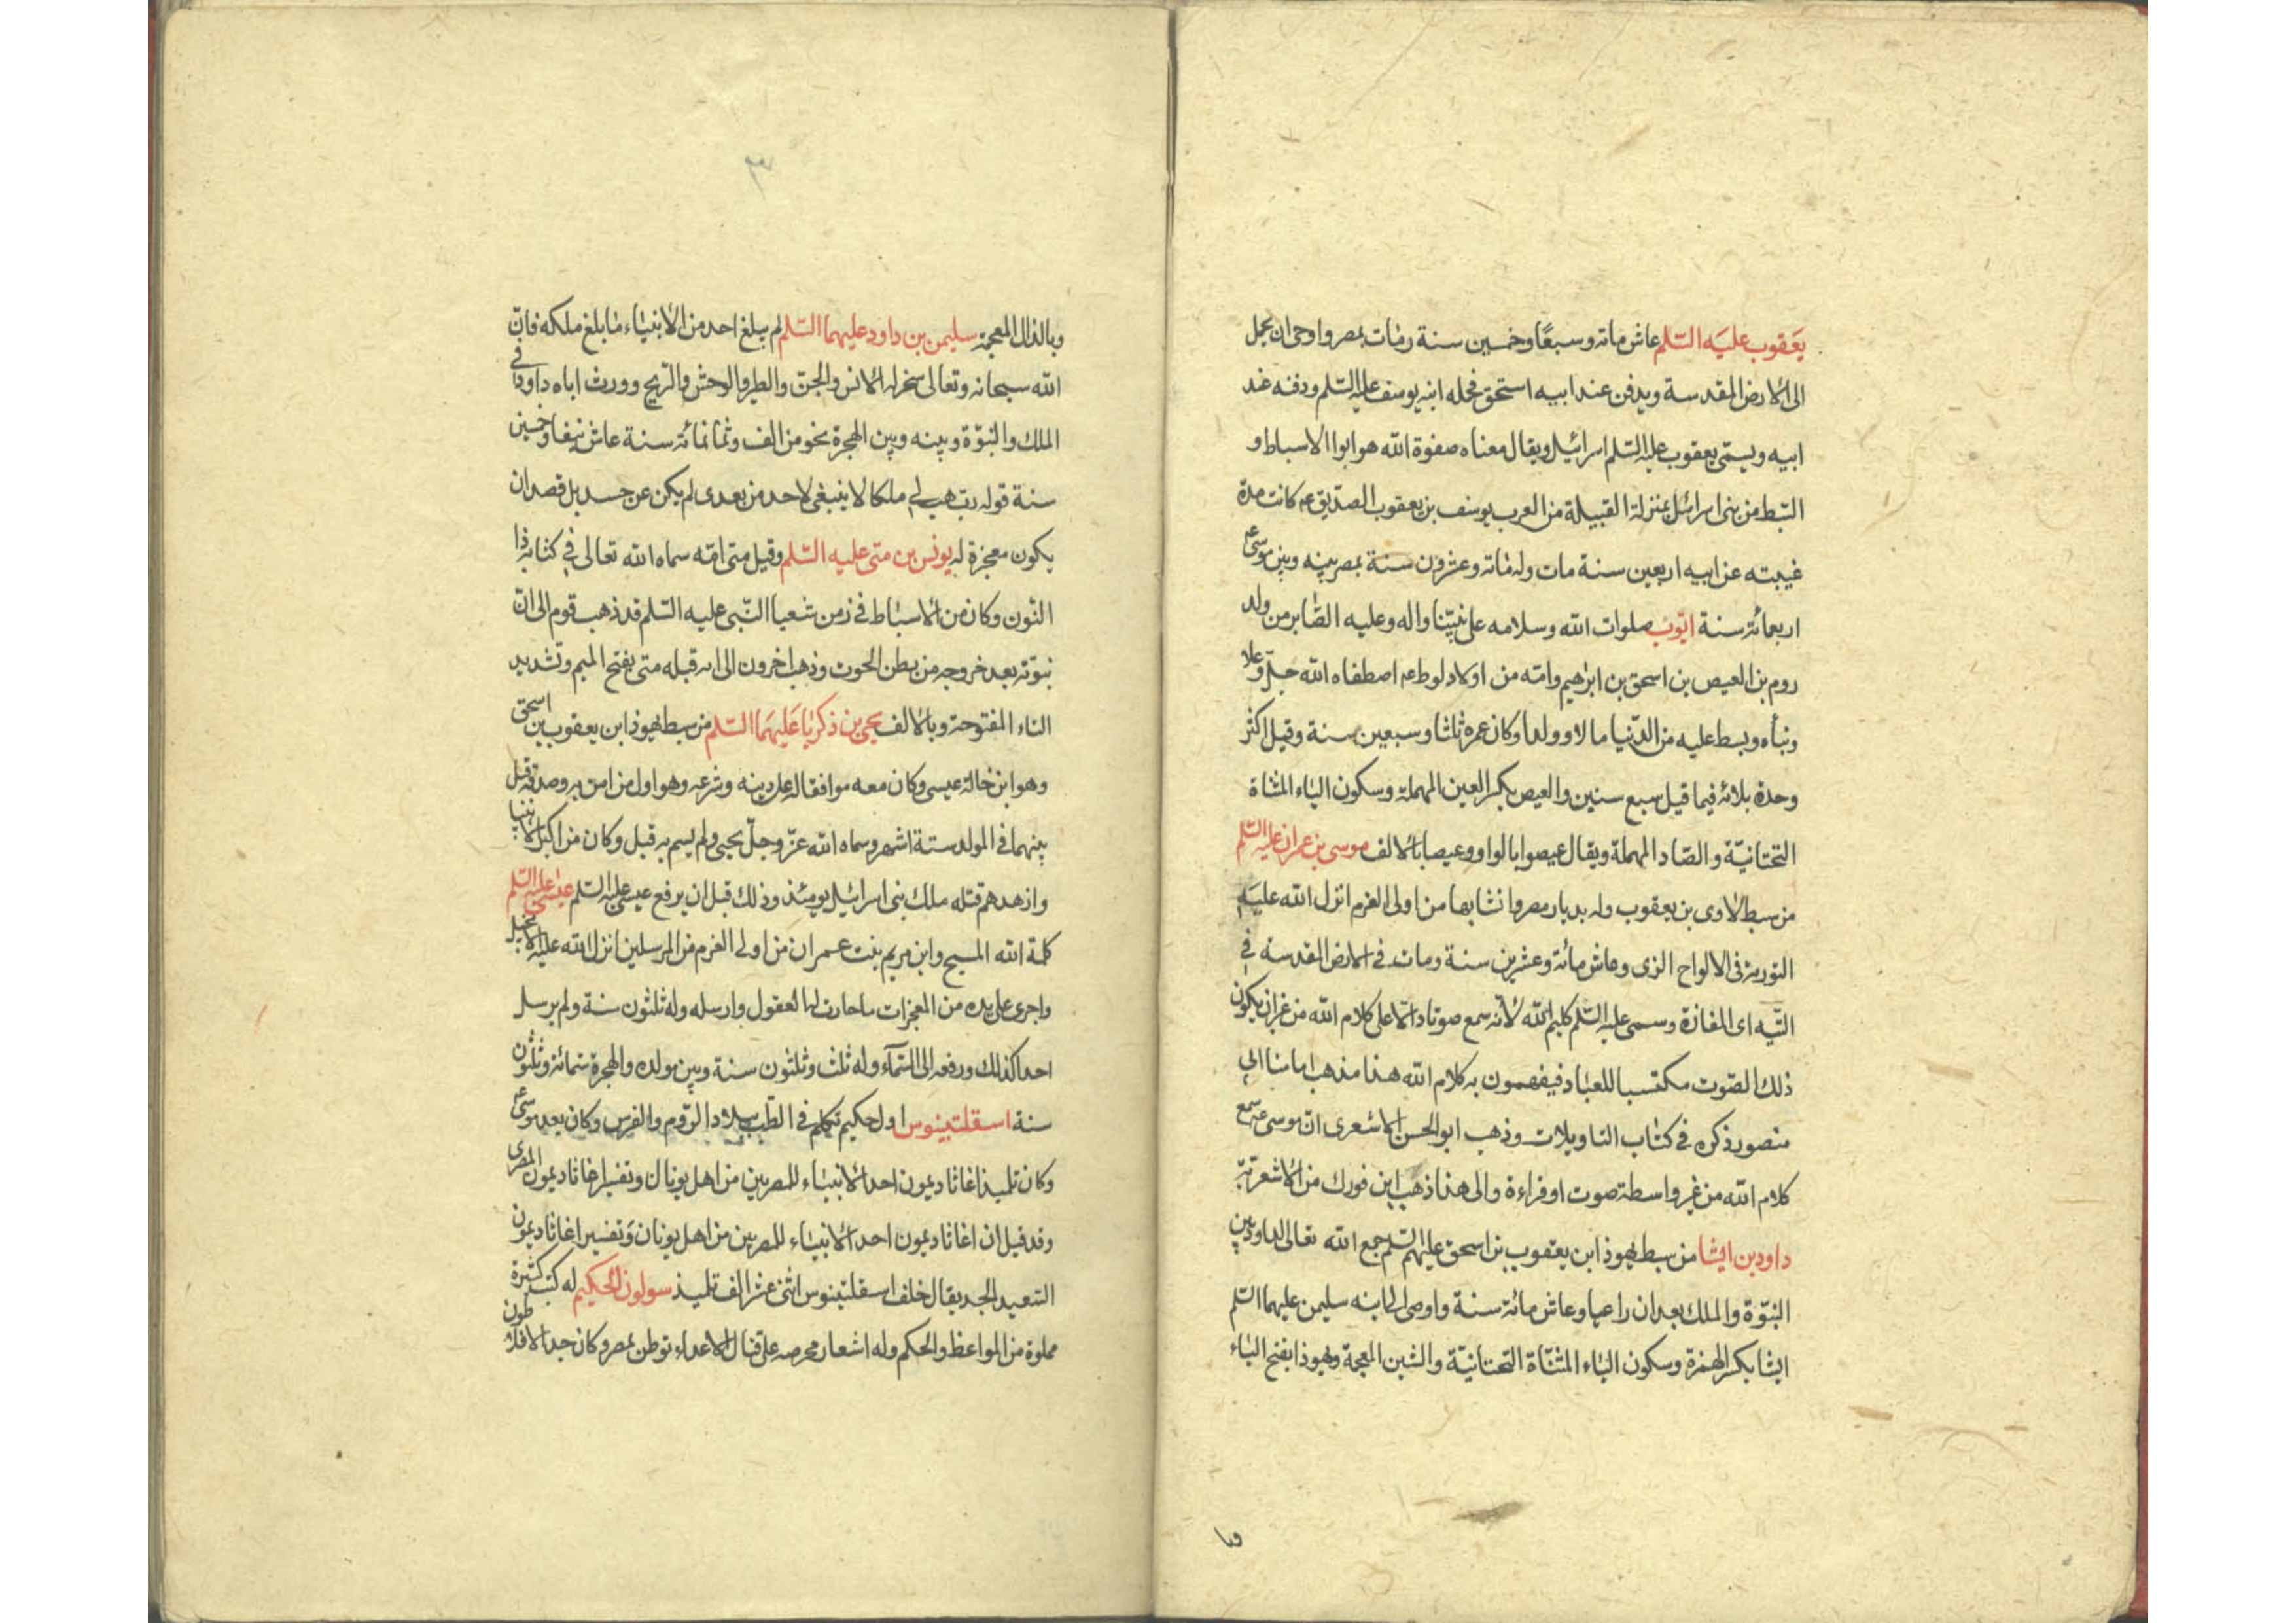 يعقوب عليه السّلم عاش مائه وسبعًا وخمسين سنة ومات بمصر واوحى ان يحمل
الى الارض المقدسة ويدفن عند ابيه اسحق فحمله ابنه يوسف عليه السّلم ودفنه عند
ابيه ويسمّى يعقوب عليه السّلم اسرائيل ويقال معناه صفوة الله هو ابوا الاسباط و
السّبط من بنى اسرائيل بمنزلة القبيلة من العرب يوسف بن يعقوب الصدّيق عم كانت مدة
غيبته عن ابيه اربعين سنة مات وله مائه وعشرون سنة بمصر بينه وبين موسى ع
اربعمائة سنة ايّوب صلوات الله وسلامه على نبيّنا واله وعليه الصّابر من ولد
روم بن العيص بن اسحق بن ابرهيم وامّه من اولاد لوط عم اصطفاه الله جلّ وعلا
ونبأه وبسط عليه من الدّنيا مالا وولدا وكان عمره ثلثا وسبعين سنة وقيل اكثر
وحدة بلائه فيما قيل سبع سنين والعيص بكسر العين المهملة وسكون الياء المثناة
التحتانيّة والصّاد المهملة ويقال عيصوا بالواو وعيصا بالالف موسى بن عمران عليه السّلم
من سبط لاوى بن يعقوب ولد بديار مصر وانشا بها من اولى العزم انزل الله عليه
التورية فى الالواح الزى وعاش مائة وعشرين سنة ومات فى الارض المقدسة فى
التّيه اى المفازة وسمى عليه السّلم كليم الله لانّه سمع صوتا دالا على كلام الله من غير ان يكون
ذلك الصّوت مكتسبا للعباد فيفهمون به كلام الله هذا مذهب امامنا ابى
منصور ذكره فى كتاب التاويلات وذهب ابو الحسن الاشعرى انّ موسى عم سمع
كلام الله من غير واسطة صوت او قراءة والى هذا ذهب ابن فورك من الاشعريّة
داود بن ايشا من سبط يهوذا بن يعقوب بن اسحق عليهم السّلم جمع الله تعالى لداود بين
النبوّة والملك بعد ان راعيا وعاش مائة سنة واوصى الى ابنه سليمن عليهما السّلم
ايشا بكسر الهمزة وسكون الياء المثنّاة التحتانيّة والشين المعجمة ويهوذا بفتح الياء
و
٣
وبالذال المعجمة سليمن بن داود عليهما السّلم لم يبلغ احد من الانبياء ما بلغ ملكه فانّ
الله سبحانه وتعالى سخر له الانس والجنّ والطير والوحش والرّيح وورث اباه داود فى
الملك والنبوّة وبينه وبين الهجرة نحو من الف وثمانمائة سنة عاش نيفا وخمسين
سنة قوله ربّ هب لى ملكا لا ينبغى لاحد من بعدى لم يكن عن حسد بل قصد ان
يكون معجزة له يونس بن متى عليه السّلم وقيل متى امّه سماه الله تعالى فى كتابه ذا
النّون وكان من الاسباط فى زمن شعيا النّبى عليه السّلم قد ذهب قوم الى انّ
نبوّته بعد خروجه من بطن الحوت وذهب اخرون الى انه قبله متى بفتح الميم وتشديد
التاء المفتوحة وبالالف يحيى بن ذكريا عليهما السّلم من سبط يهوذا بن يعقوب بن اسحق
وهو ابن خالة عيسى وكان معه موافقا له على دينه وشرعه وهو اول من امن به وصدقه قيل
بينهما فى المولد ستة اشهر وسماه الله عزّ وجلّ يحيى ولم يسم به قبل وكان من اكبر الانبيا
وازهدهم قتله ملك بنى اسرائيل يومئذ وذلك قبل ان يرفع عيسى عليه السّلم عيسى عليه السّلم
كلمة الله المسيح وابن مريم بنت عمران من اولى العزم من المرسلين انزل الله عليه الانجيل
واجرى على يده من المعجزات ما حارت لها العقول وارسله وله ثلثون سنة ولم يرسل
احدا كذلك ورفعه الى السّمآء وله ثلث وثلثون سنة وبين مولده والهجرة ستمائة وثلثون
سنة اسقلنبينوس اول حكيم تكلم فى الطّب ببلاد الرّوم والفرس وكان بعد موسى ع
وكان تلميذ اغاثاديمون احد الانبياء للمصريين من اهل يونان وتفسير اغاثاديمون المصرى
وقد قيل ان اغاثاديمون احد الانبياء للمصريين من اهل يونان وتفسير اغاثاديمون
السّعيد الجد يقال خلف اسقلنبينوس اثنى عشر الف تلميذ سولون الحكيم له كتب كثيرة
مملوة من المواعظ والحكم وله اشعار محرصه على قتال الاعداء توطن بمصر وكان جد الافلاطون